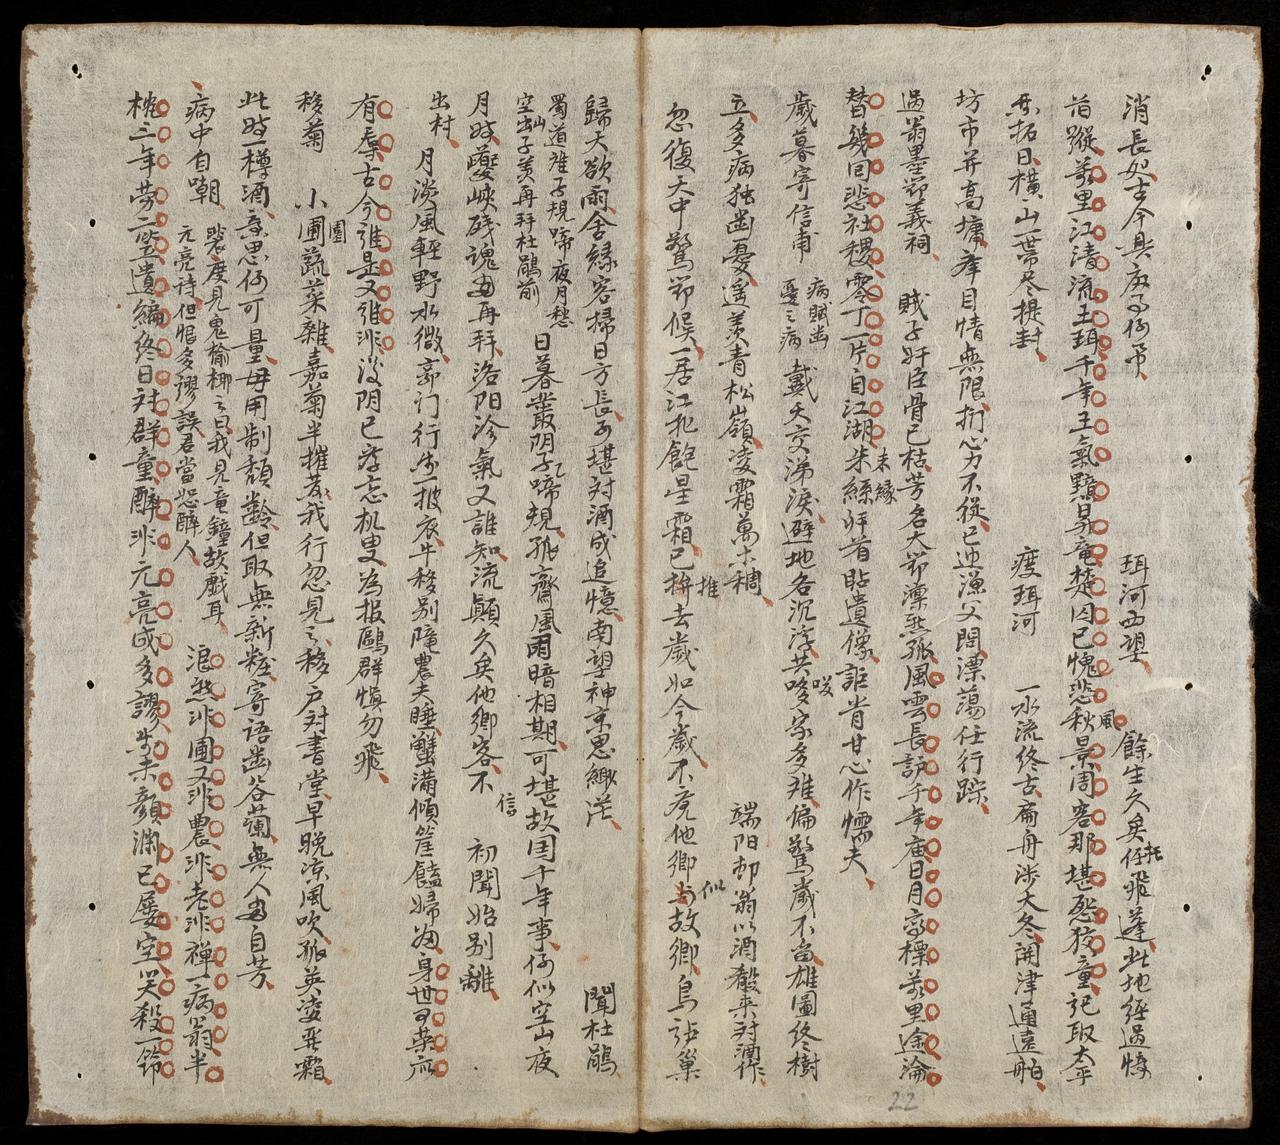 消長如古今興廢了何常　珥河西望　餘生久矣任飛蓬此地經過悵
舊蹤萬里江清流玉珥千年王氣黯昇竜楚囚已愧悲秋景周客那堪慰狡童記取太平
開拓日橫山一帶盡提封　渡珥河　一水流終古扁舟涉大冬開津通遠舶
坊市井高墉舉目情無限捫心力不從已迎漁父問漂蕩任行踪
過翁墨節義祠　賊子奸臣骨已枯芳名大節凜然孤風雲長護千年廟日月高標萬里途淪
替幾回悲社稷零丁一片自江湖未緣斫首貼遺像詎肯甘心作懦夫
歲暮寄信甫　病賦齒憂之病　戴天交涕淚避地各沉浮共嘆家多難偏驚歲不留雄圖終樹
立多病独齒憂遥羨青松嶺凌霜萬木稠　端阳邨翁以酒殽來対酒作
忽復天中驚節候一居江北飽星霜已拚推去歲如今歲不覚他鄉似故鄉鳥訪巢
歸天欲雨舍緣客掃日方長可堪対酒成追憶南望神京思緲茫　聞杜鵑
蜀道难子規啼夜月愁空山子美再拜杜鵑前　日暮叢阴子啼規孤齋風雨暗相期可堪故国千年事何似空山夜
月時夔峽殘魂再拜洛阳沴氣又誰知流顛久矣他鄉客不信　初聞始別離
出村　月淡風輕野水微郭门行步一披衣牛移別隴農夫睡蟹滿傾筐饁婦為身世可菜瓜
有辱古今誰是又誰非淡阴已為忘机叟為报鷗群慎勿飛
移菊　小圃園蔬菜雜嘉菊半摧萎我行忽見之移户対書堂早晚凉風吹孤英凌英霜
此時一樽酒意思何可量毋用制頹齡但取無新粧寄语幽谷蘭無人自芳
病中自嘲　裴度見鬼揄揶之曰我見竜鐘故戲耳　元亮诗但恨多謬誤君當恕醉人　混然非圃又非農非老非禪一病翁半
枕三年勞二竪遺編終日対群童醉非元亮成多謬步未顏渊已屡空笑殺一節
22